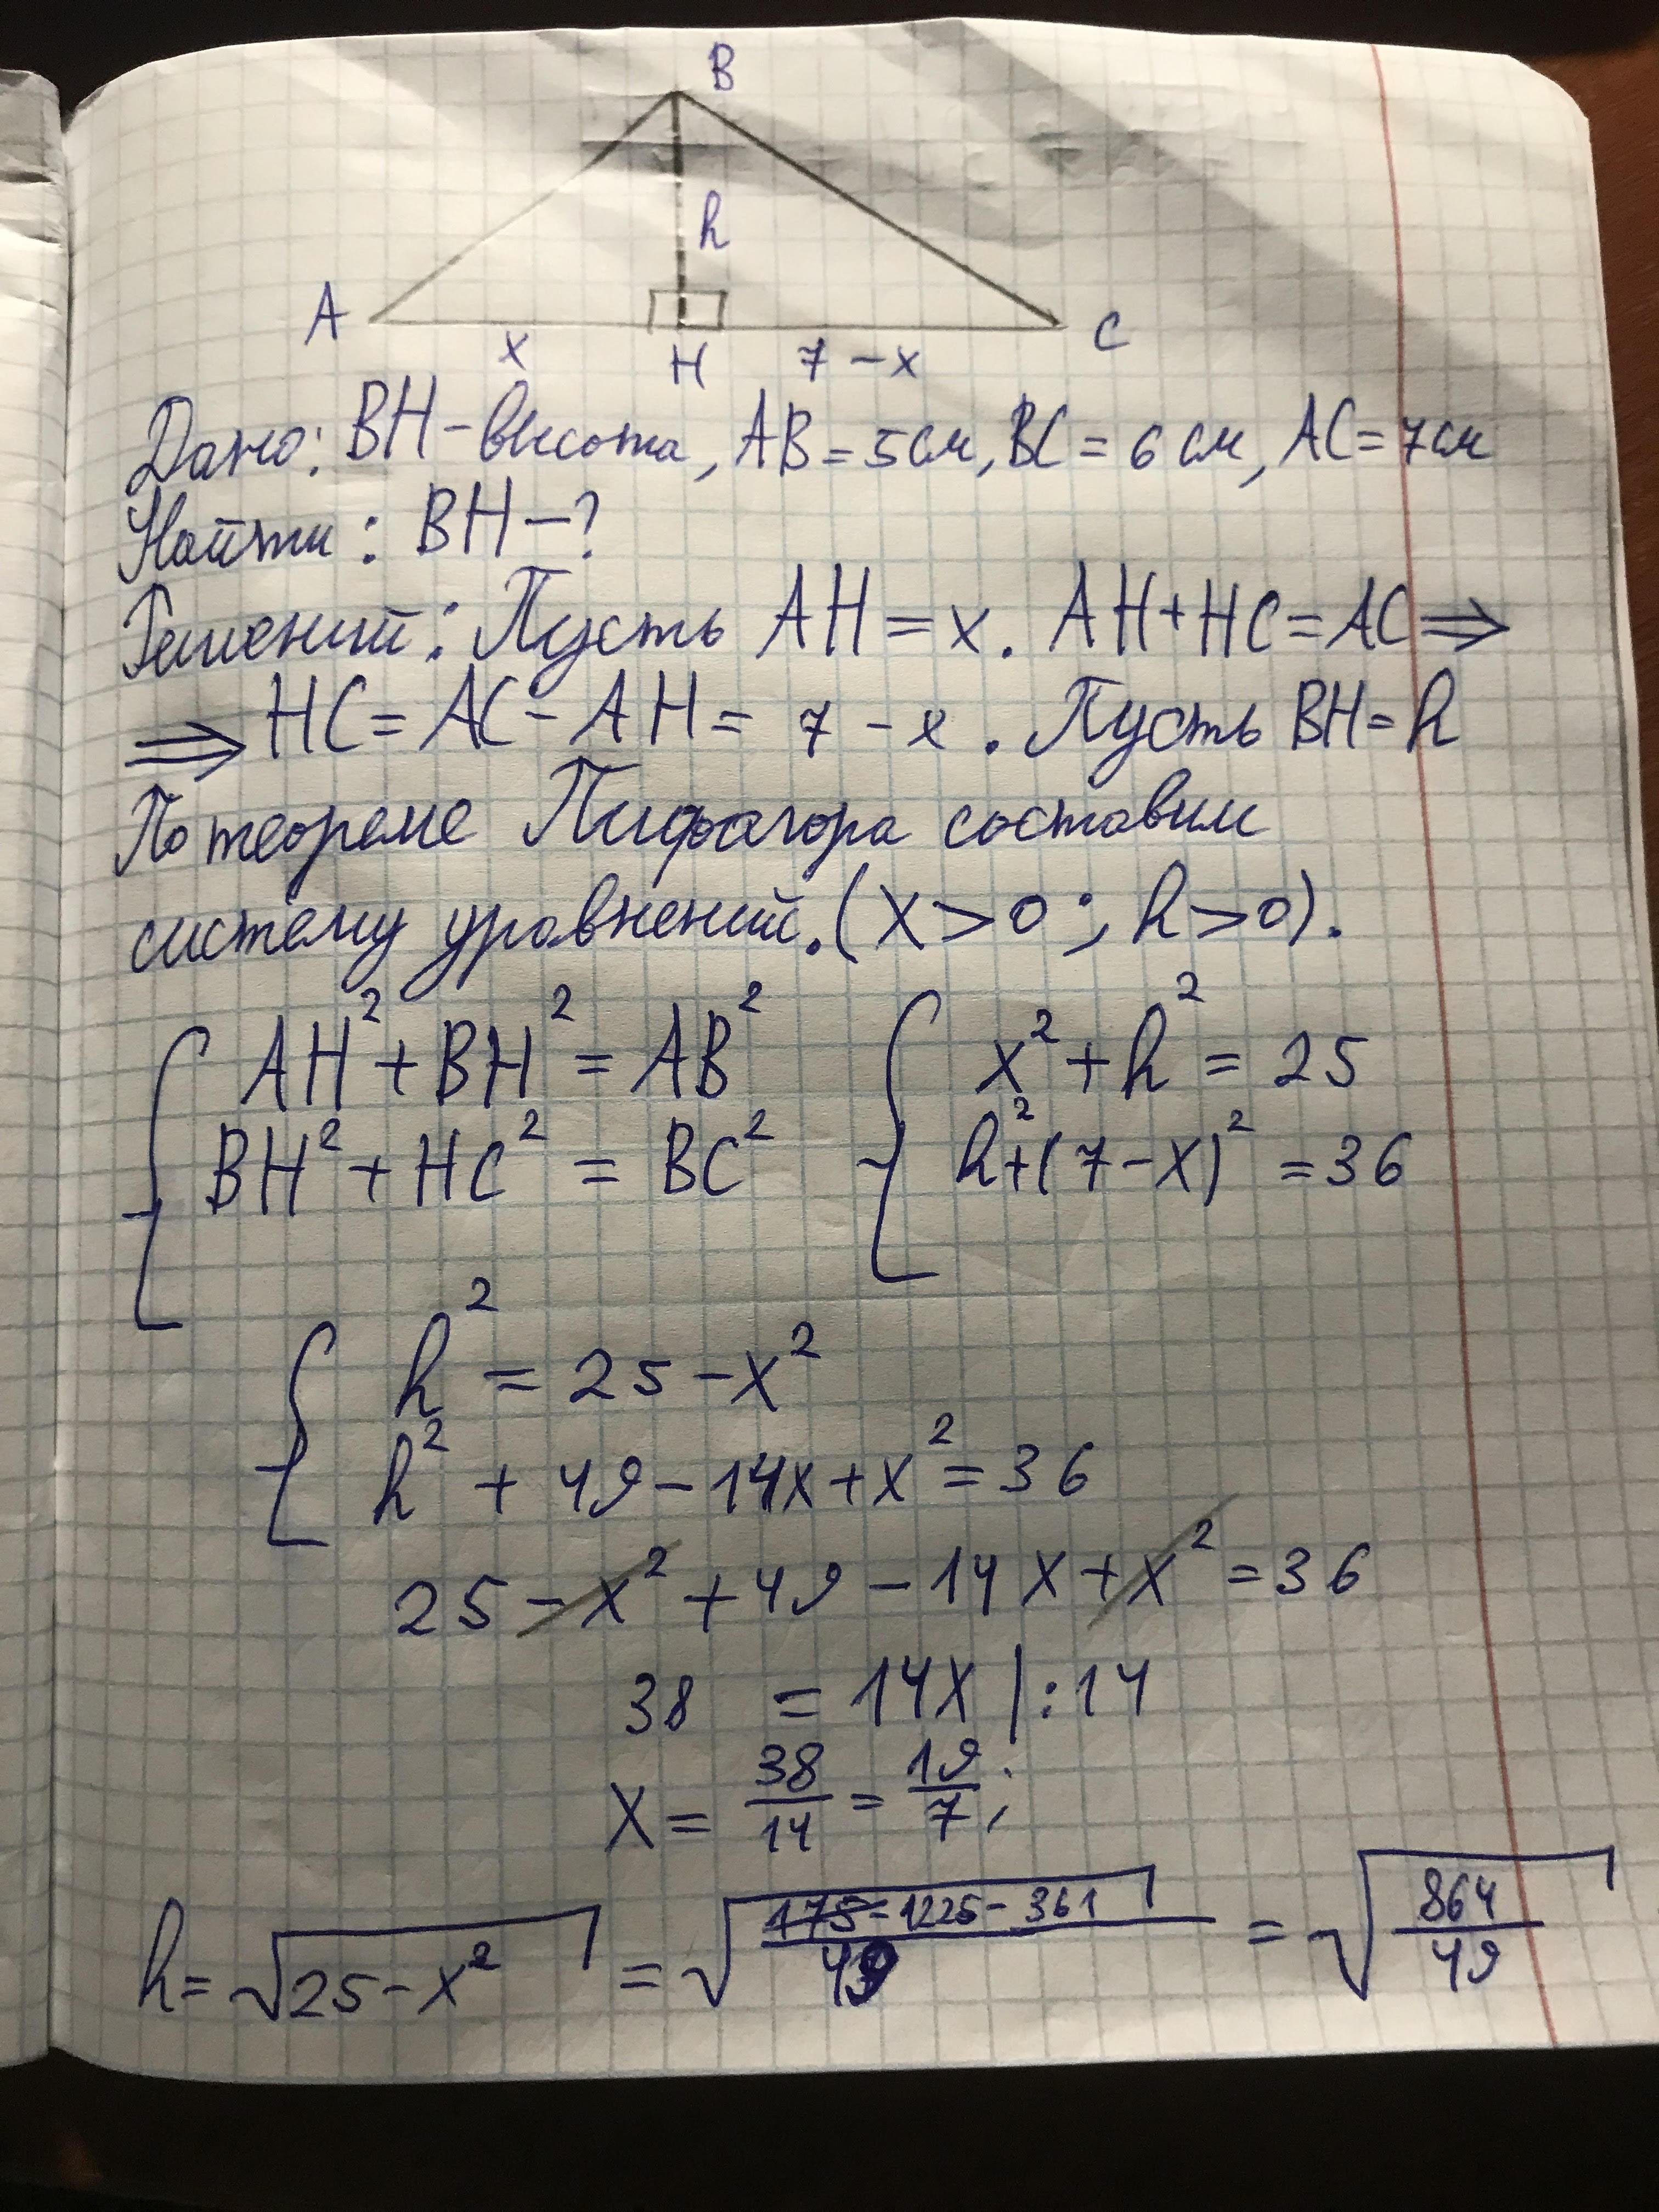 B
h
A
C
x
H
7 - x
Дано: BH - высота, AB = 5 см, BC = 6 см, AC = 7 см
Найти: BH - ?
Решений: Пусть AH = x. AH + HC = AC ⇒
⇒ HC = AC - AH = 7 - x. Пусть BH = h
По теореме Пифагора составим
систему уравнений. (x > 0; h > 0).
{ AH² + BH² = AB² { x² + h² = 25
BH² + HC² = BC² h² + (7 - x)² = 36
{ h² = 25 - x²
h² + 49 - 14x + x² = 36
25 - x² + 49 - 14x + x² = 36
38 = 14x | : 14
x = 38/14 = 19/7;
h = √(25 - x²) = √((175 = 1225 - 361)/49) = √(864/49)